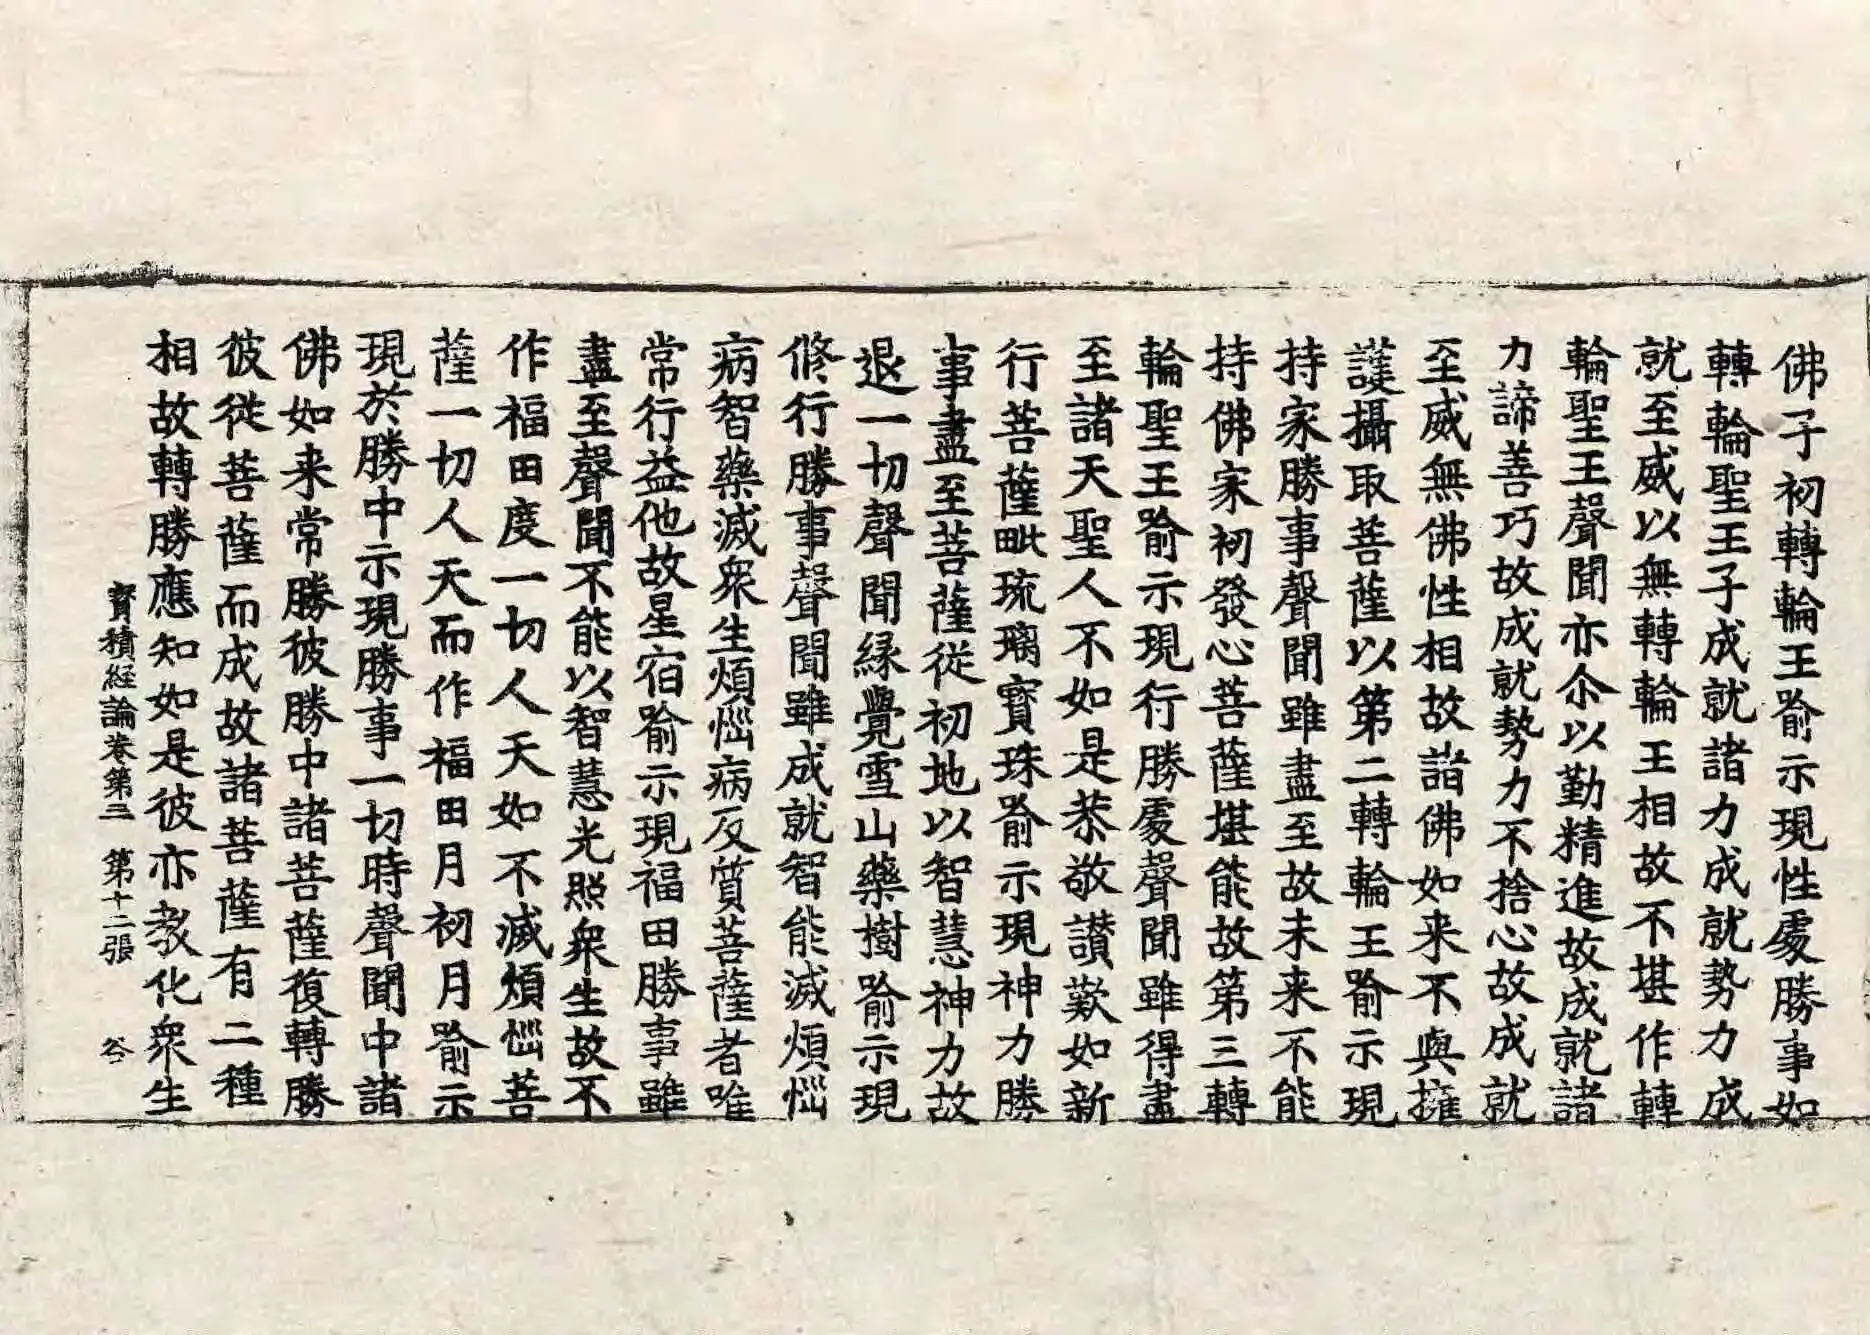 佛子初轉輪王喻示現性處勝事如
轉輪聖王子成就諸力成就勢力成
就至威以無轉輪王相故不堪作轉
輪聖王聲聞亦尒以勤精進故成就諸
力諦善巧故成就勢力不捨心故成就
至威無佛性相故諸佛如来不與擁
護攝取菩薩以第二轉輪王喻示現
持家勝事聲聞雖盡至故未来不能
持佛家初發心菩薩堪能故第三轉
輪聖王喻示現行勝處聲聞雖得盡
至諸天聖人不如是恭敬讃歎如新
行菩薩毗琉璃寶珠喻示現神力勝
事盡至菩薩從初地以智慧神力故
退一切聲聞縁覺雪山藥樹喻示現
修行勝事聲聞雖成就智能滅煩惱
病智藥滅衆生煩惱病反質菩薩者唯
常行益他故星宿喻示現福田勝事雖
盡至聲聞不能以智慧光照衆生故不
作福田度一切人天如不滅煩惱菩
薩一切人天而作福田月初月喻示
現於勝中示現勝事一切時聲聞中諸
佛如来常勝彼勝中諸菩薩復轉勝
彼從菩薩而成故諸菩薩有二種
相故轉勝應知如是彼亦教化衆生
寳積経論卷第三　第十二張